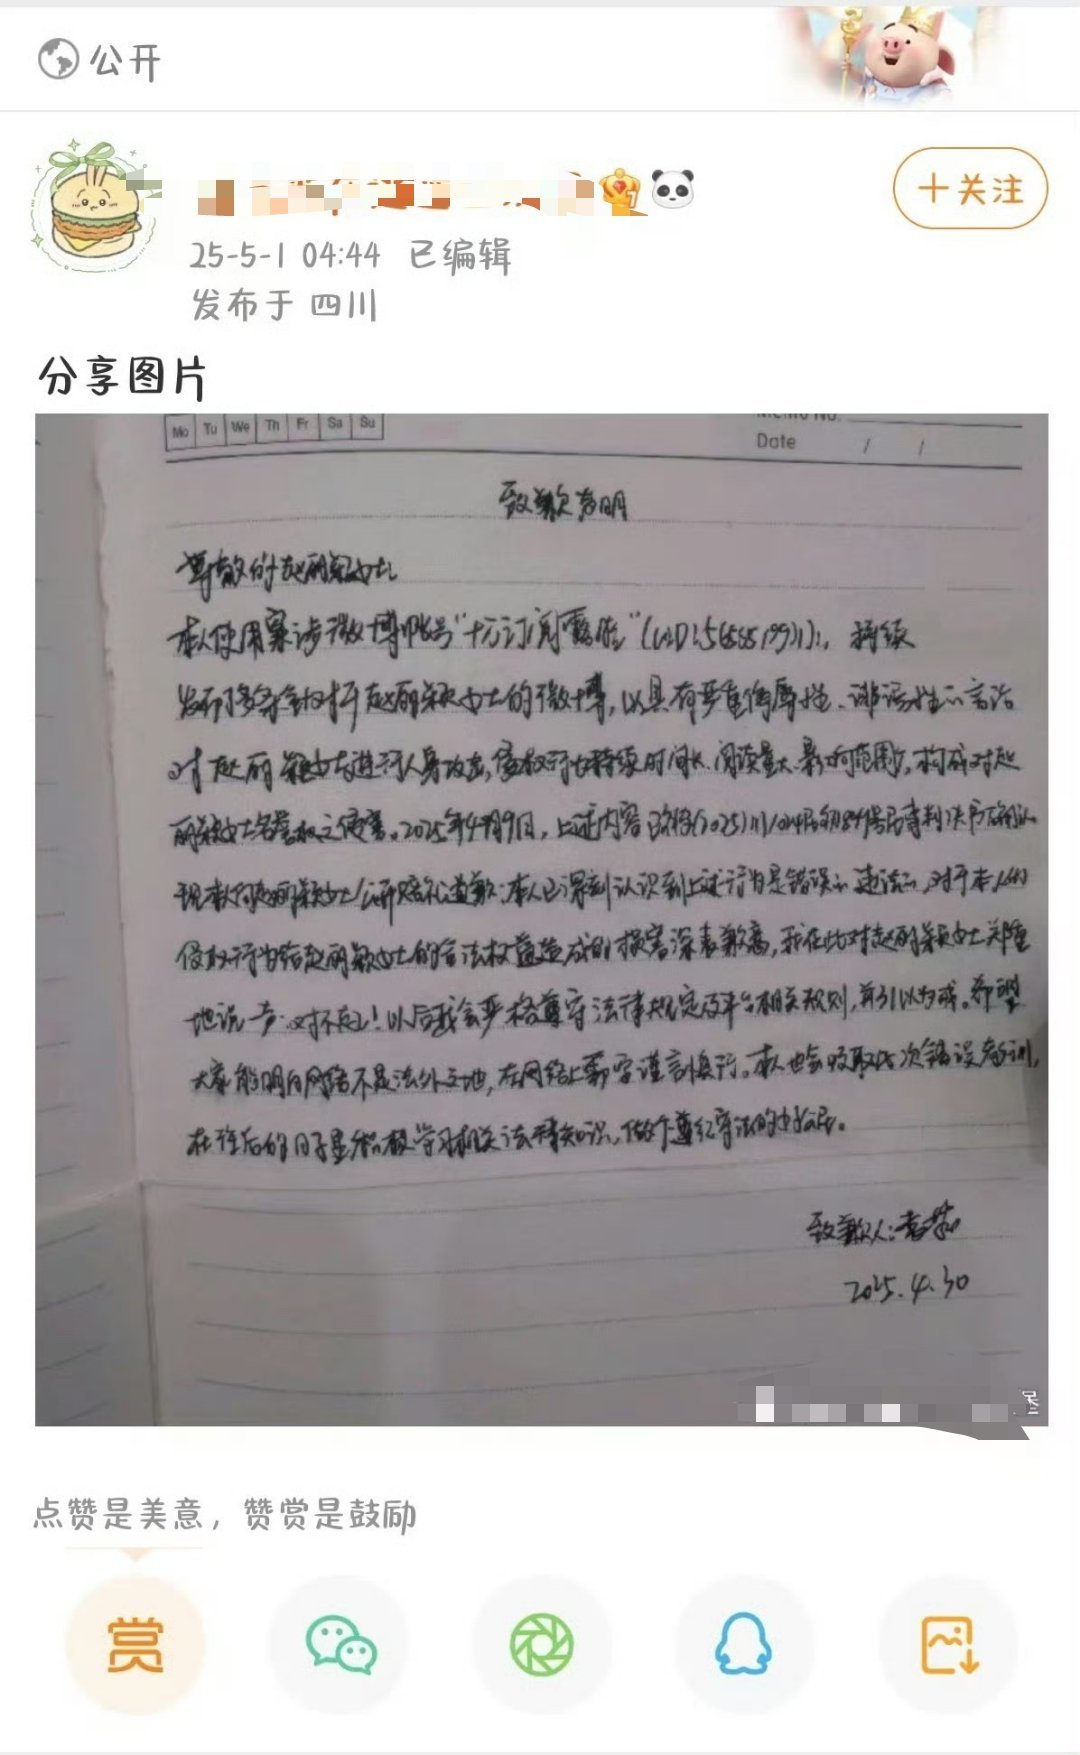 公开
+关注
25-5-1 04:44 已编辑
发布于 四川
分享图片
Mo Tu We Th Fr Sa Su
Memo No.
Date / /
致歉声明
尊敬的赵丽颖女士
本人使用案涉微博帐号"订阅"(UID:), 持续
发布多条针对赵丽颖女士的微博,以具有严重侮辱性、诽谤性的言语
对赵丽颖女士进行人身攻击,侵权行为持续时间长、阅读量大、影响范围广,构成对赵
丽颖女士名誉权之侵害。2025年4月9日,上述内容已经(2025)川民初号民事判决书确认
现本人向赵丽颖女士公开赔礼道歉:本人已深刻认识到上述行为是错误的、违法的,对于本人的
侵权行为给赵丽颖女士的合法权益造成的损害深表歉意,我在此对赵丽颖女士郑重
地说一声:对不起!以后我会严格遵守法律规定及平台相关规则,并引以为戒。希望
大家能明白网络不是法外之地,在网络上要谨言慎行。本人也会吸取此次错误教训,
在往后的日子里积极学习相关法律知识,做个遵纪守法的好公民。
致歉人:
2025.4.30
点赞是美意,赞赏是鼓励
赏